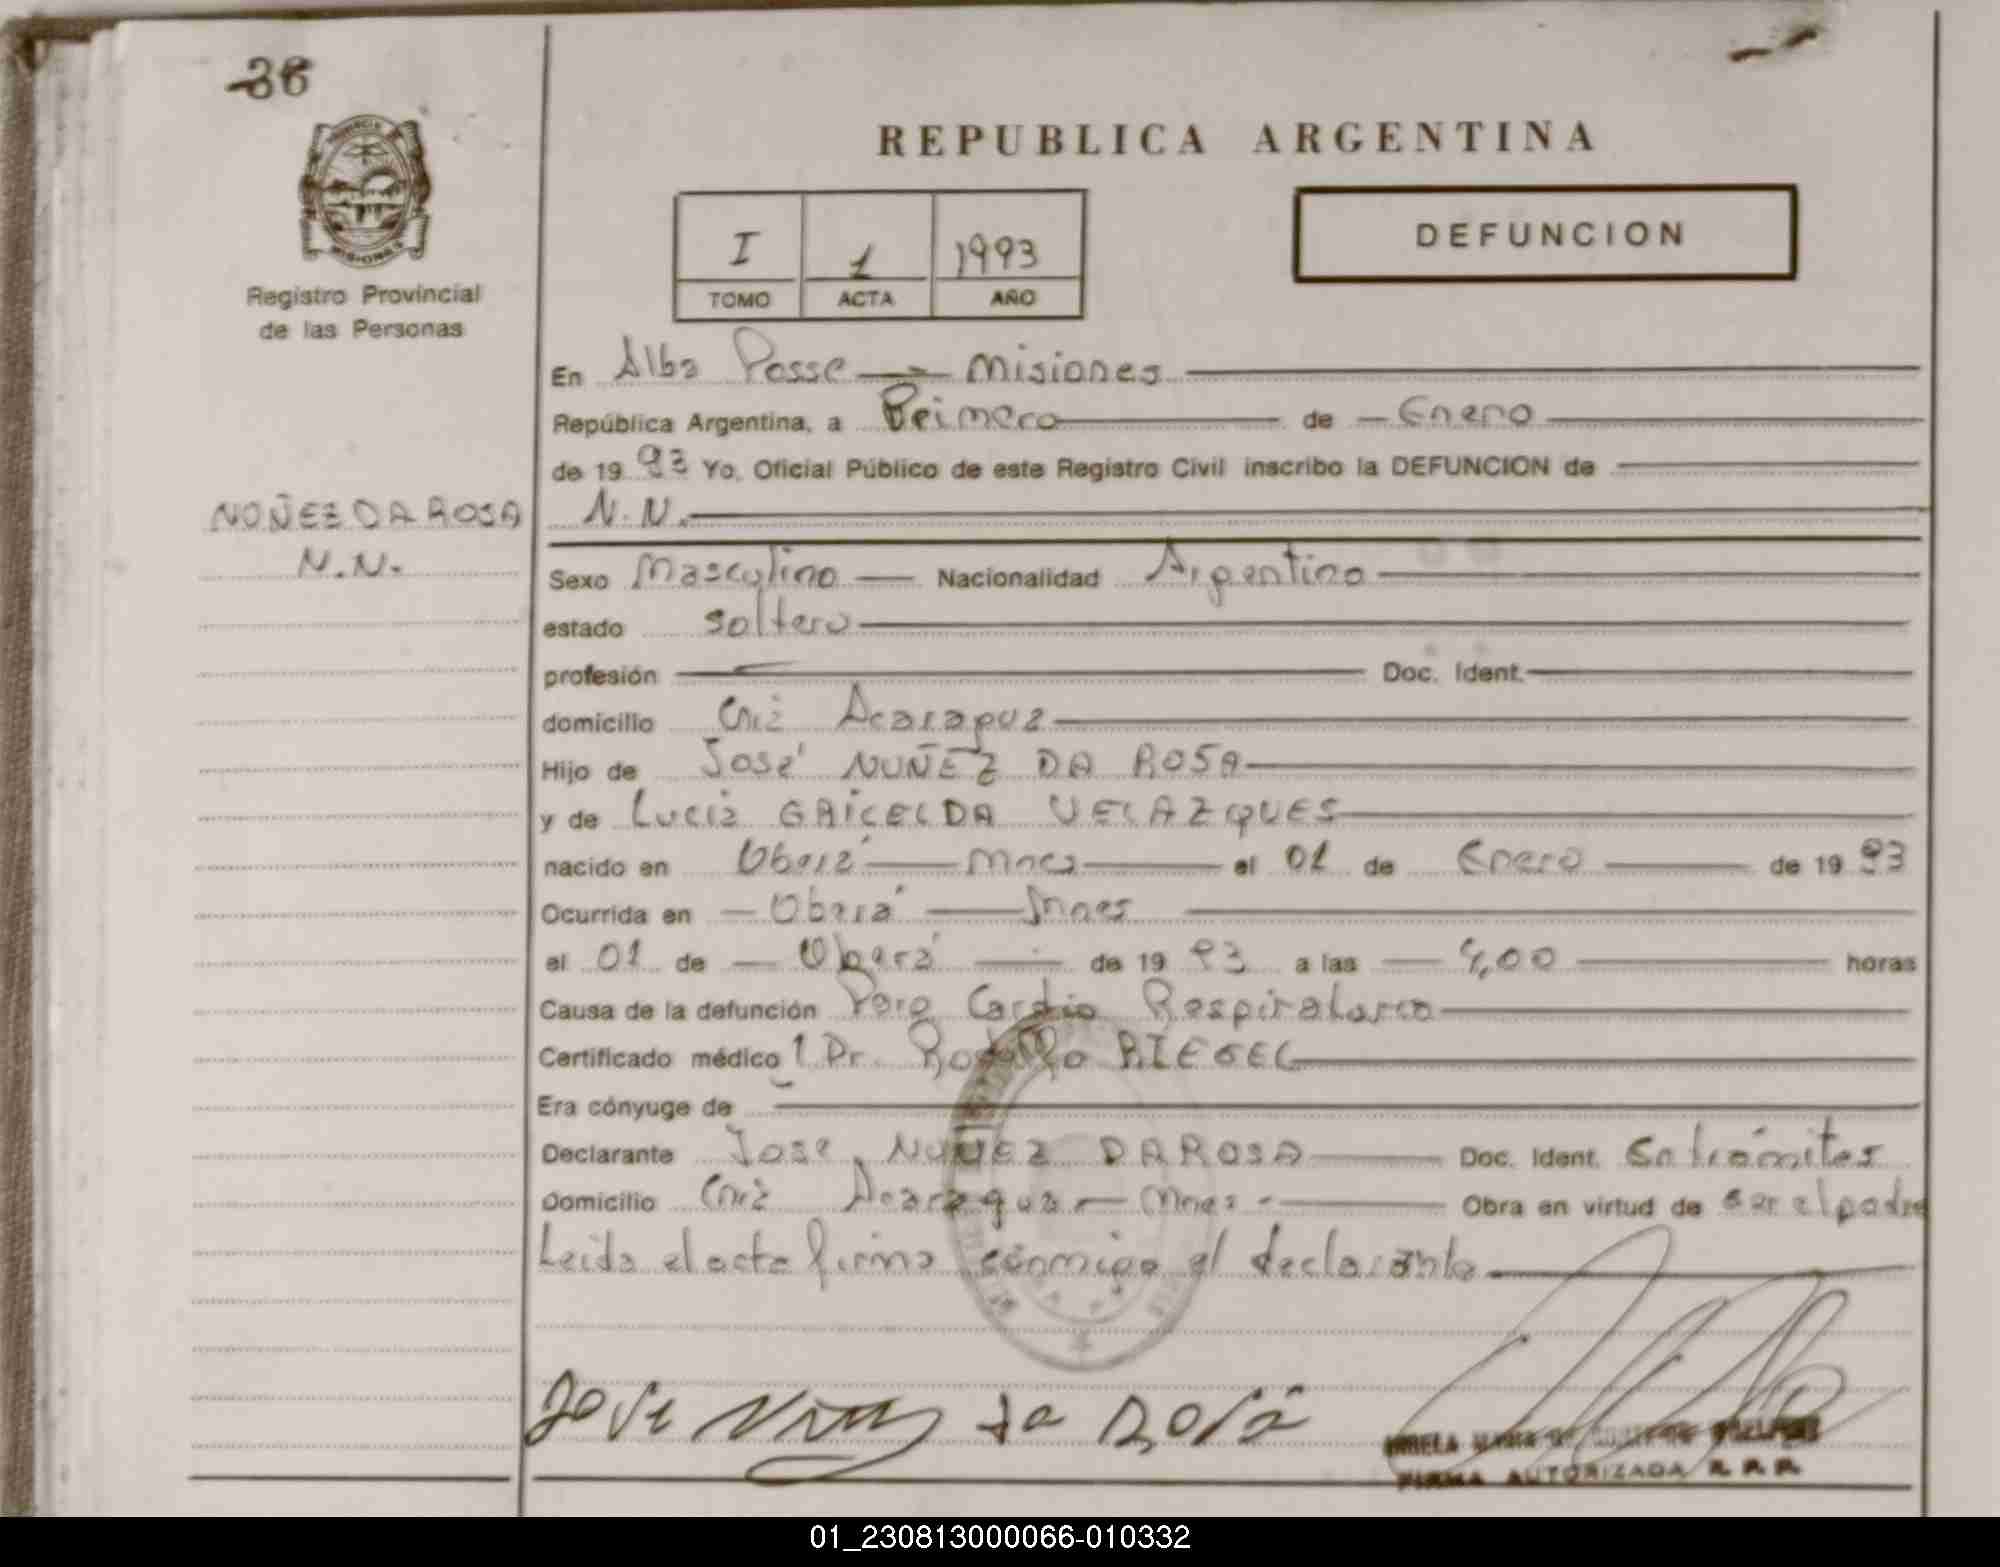 36
PROVINCIA
MISIONES
Registro Provincial
de las Personas
REPUBLICA ARGENTINA
I 1 1993
TOMO ACTA AÑO
DEFUNCION
En Alba Posse — Misiones
República Argentina, a Primero de Enero
de 1993 Yo, Oficial Público de este Registro Civil inscribo la DEFUNCION de
NOÑEZ DA ROSA
N.N.
N.N.
Sexo Masculino Nacionalidad Argentino
estado soltero
profesión Doc. Ident.
domicilio Acaragua
Hijo de José NUÑEZ DA ROSA
y de Lucia GRICELDA VELAZQUES
nacido en Oberá Mnes el 01 de Enero de 1993
Ocurrida en Oberá Mnes
el 01 de Oberá de 1993 a las 4,00 horas
Causa de la defunción Paro Cardio Respiratorio
Certificado médico Dr. Rodolfo RIEGEL
Era cónyuge de
Declarante Jose NUÑEZ DA ROSA Doc. Ident. En trámites
Domicilio Acaragua — Mnes - Obra en virtud de ser el padre
Leida el acta firma conmigo el declarante
Jose da Rosa
FIRMA AUTORIZADA R. P. P.
01_230813000066-010332